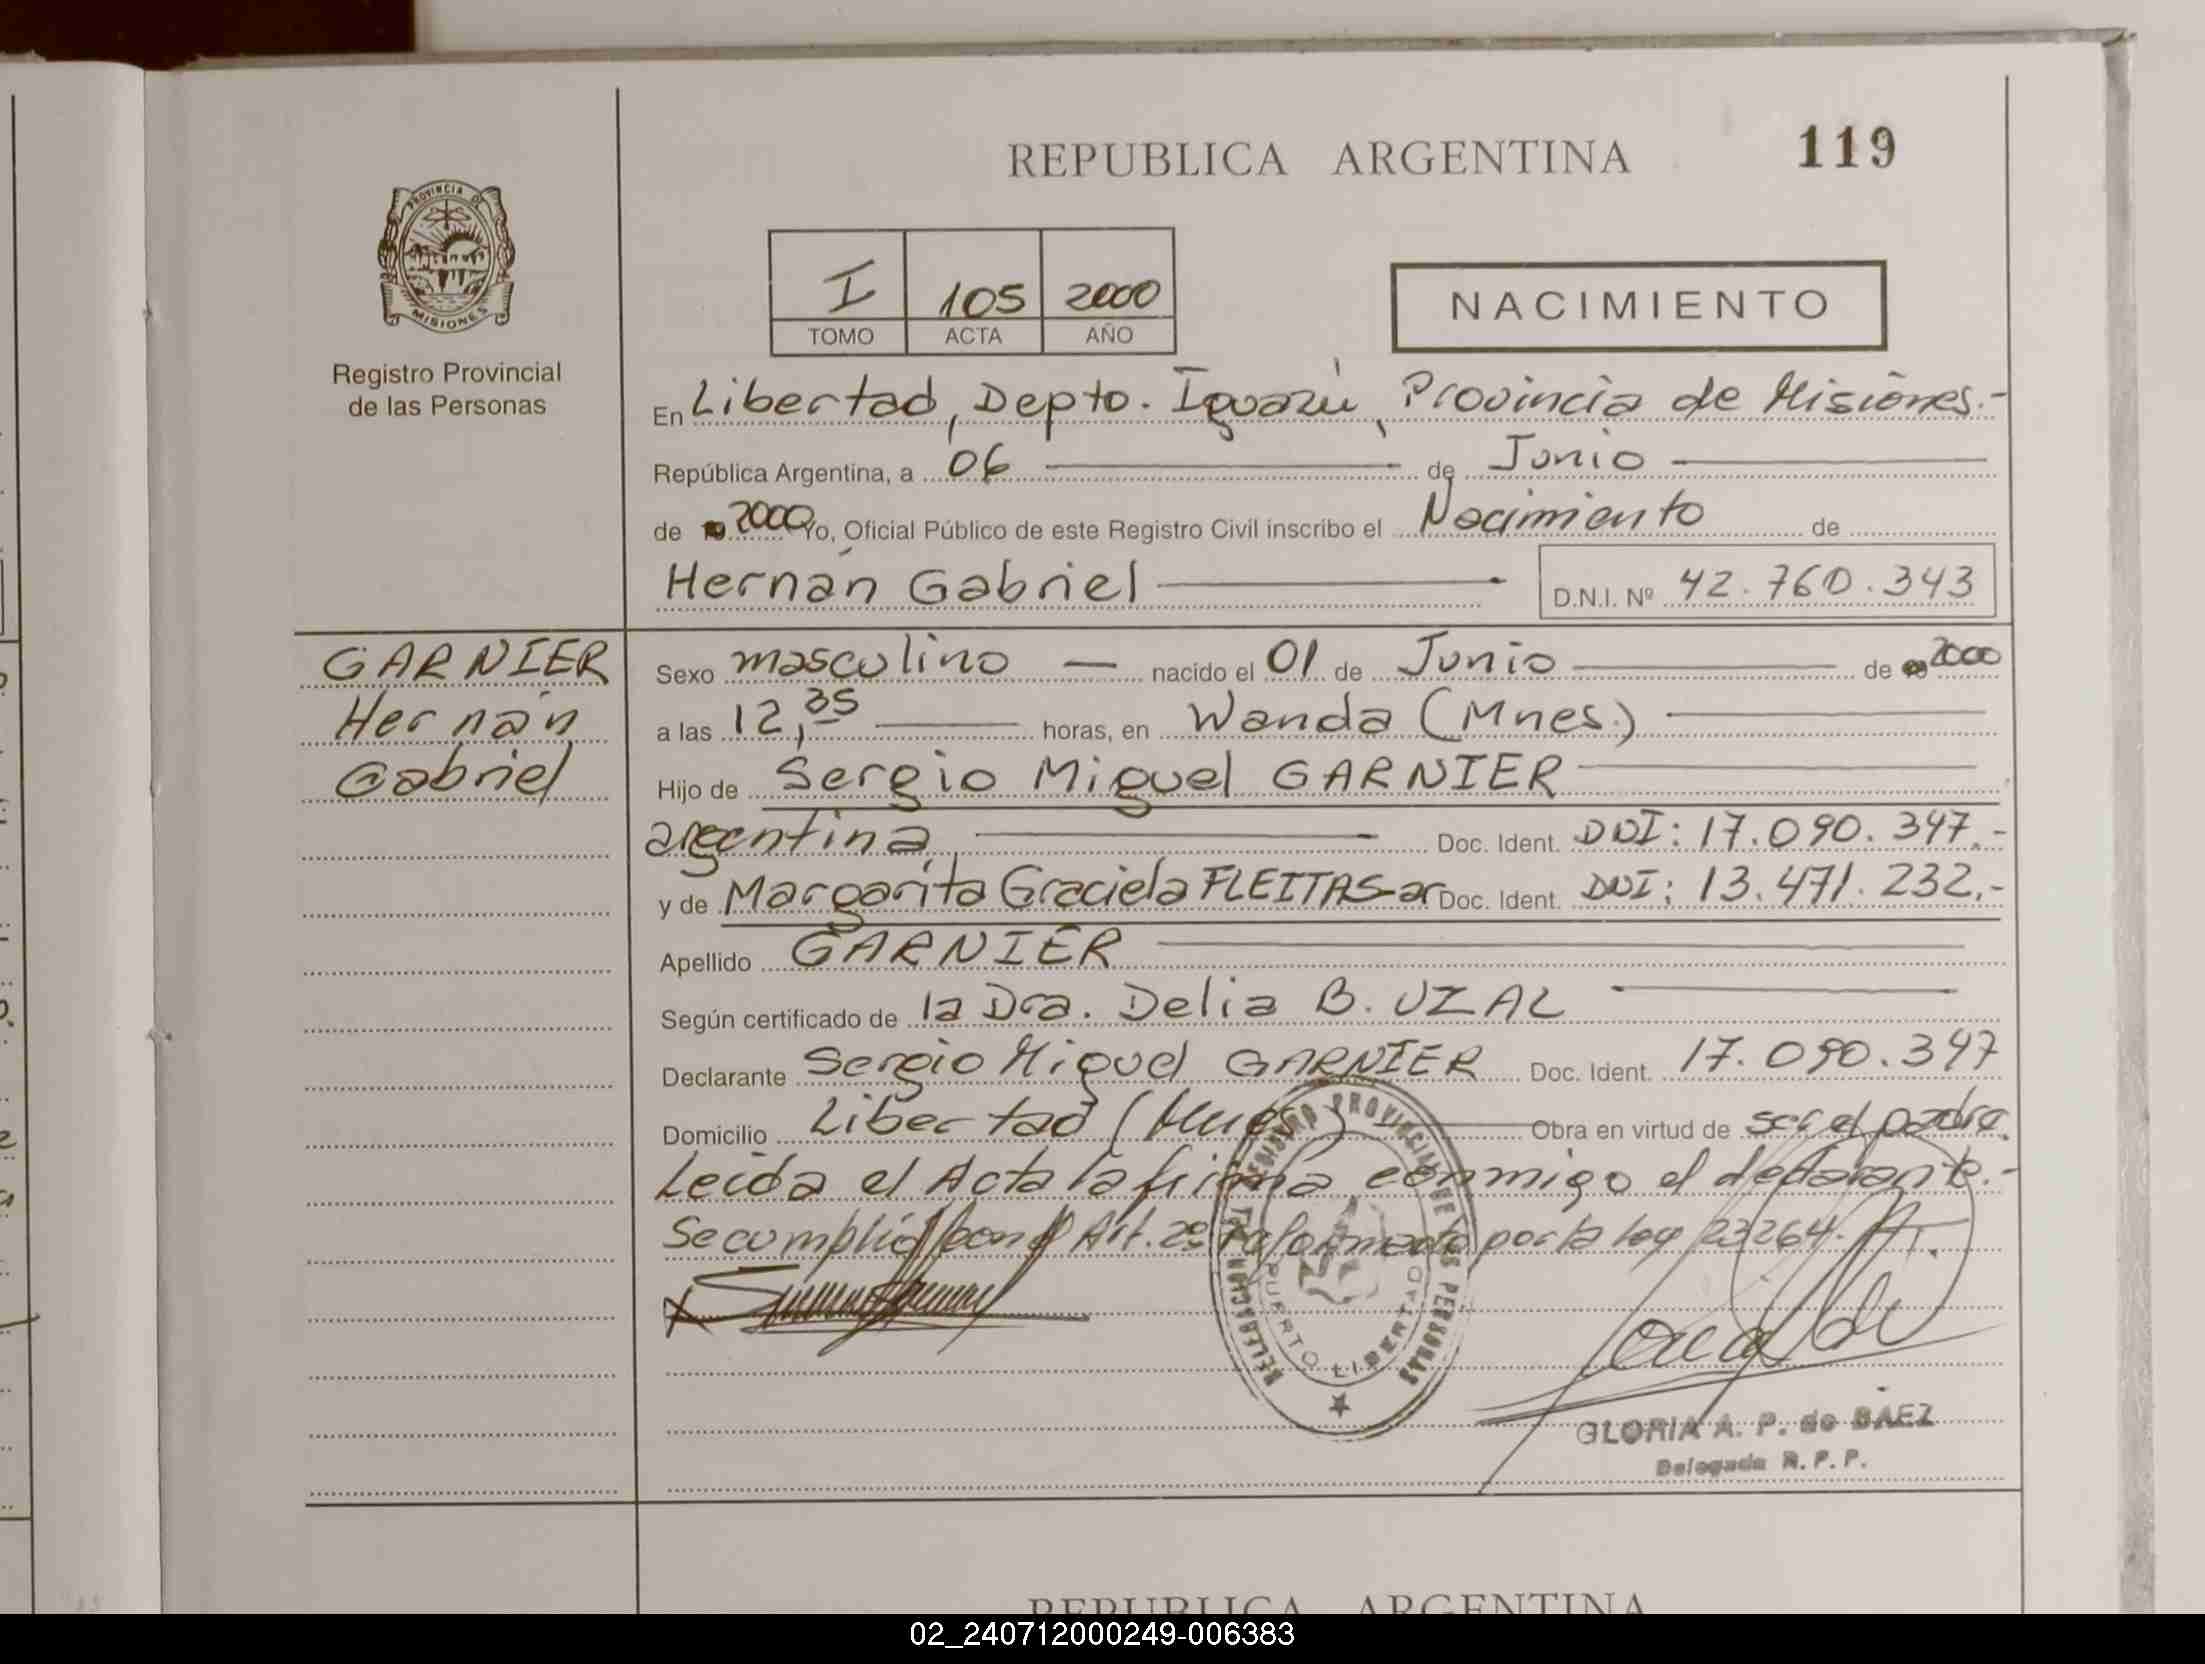 REPUBLICA ARGENTINA
119
PROVINCIA DE
MISIONES
Registro Provincial
de las Personas
I 105 2000
TOMO ACTA AÑO
NACIMIENTO
En Libertad, Depto. Iguazú, Provincia de Misiones.-
República Argentina, a 06 de Junio
de 2000 Yo, Oficial Público de este Registro Civil inscribo el Nacimiento de
Hernán Gabriel
D.N.I. Nº 42.760.343
GARNIER
Hernán
Gabriel
Sexo masculino nacido el 01 de Junio de 2000
a las 12,35 horas, en Wanda (Mnes.)
Hijo de Sergio Miguel GARNIER
argentina Doc. Ident. DNI: 17.090.347.-
y de Margarita Graciela FLEITAS-ar Doc. Ident. DNI: 13.471.232.-
Apellido GARNIER
Según certificado de la Dra. Delia B. UZAL
Declarante Sergio Miguel GARNIER Doc. Ident. 17.090.347
Domicilio Libertad (Mnes) Obra en virtud de ser el padre.
Leída el Acta la firma conmigo el declarante.-
Se cumplió con el Art. 2º reformado por la ley 23264.
REGISTRO PROVINCIAL DE LAS PERSONAS
PUERTO LIBERTAD
GLORIA A. P. de BAEZ
Delegada R. P. P.
REPUBLICA ARGENTINA
02_240712000249-006383